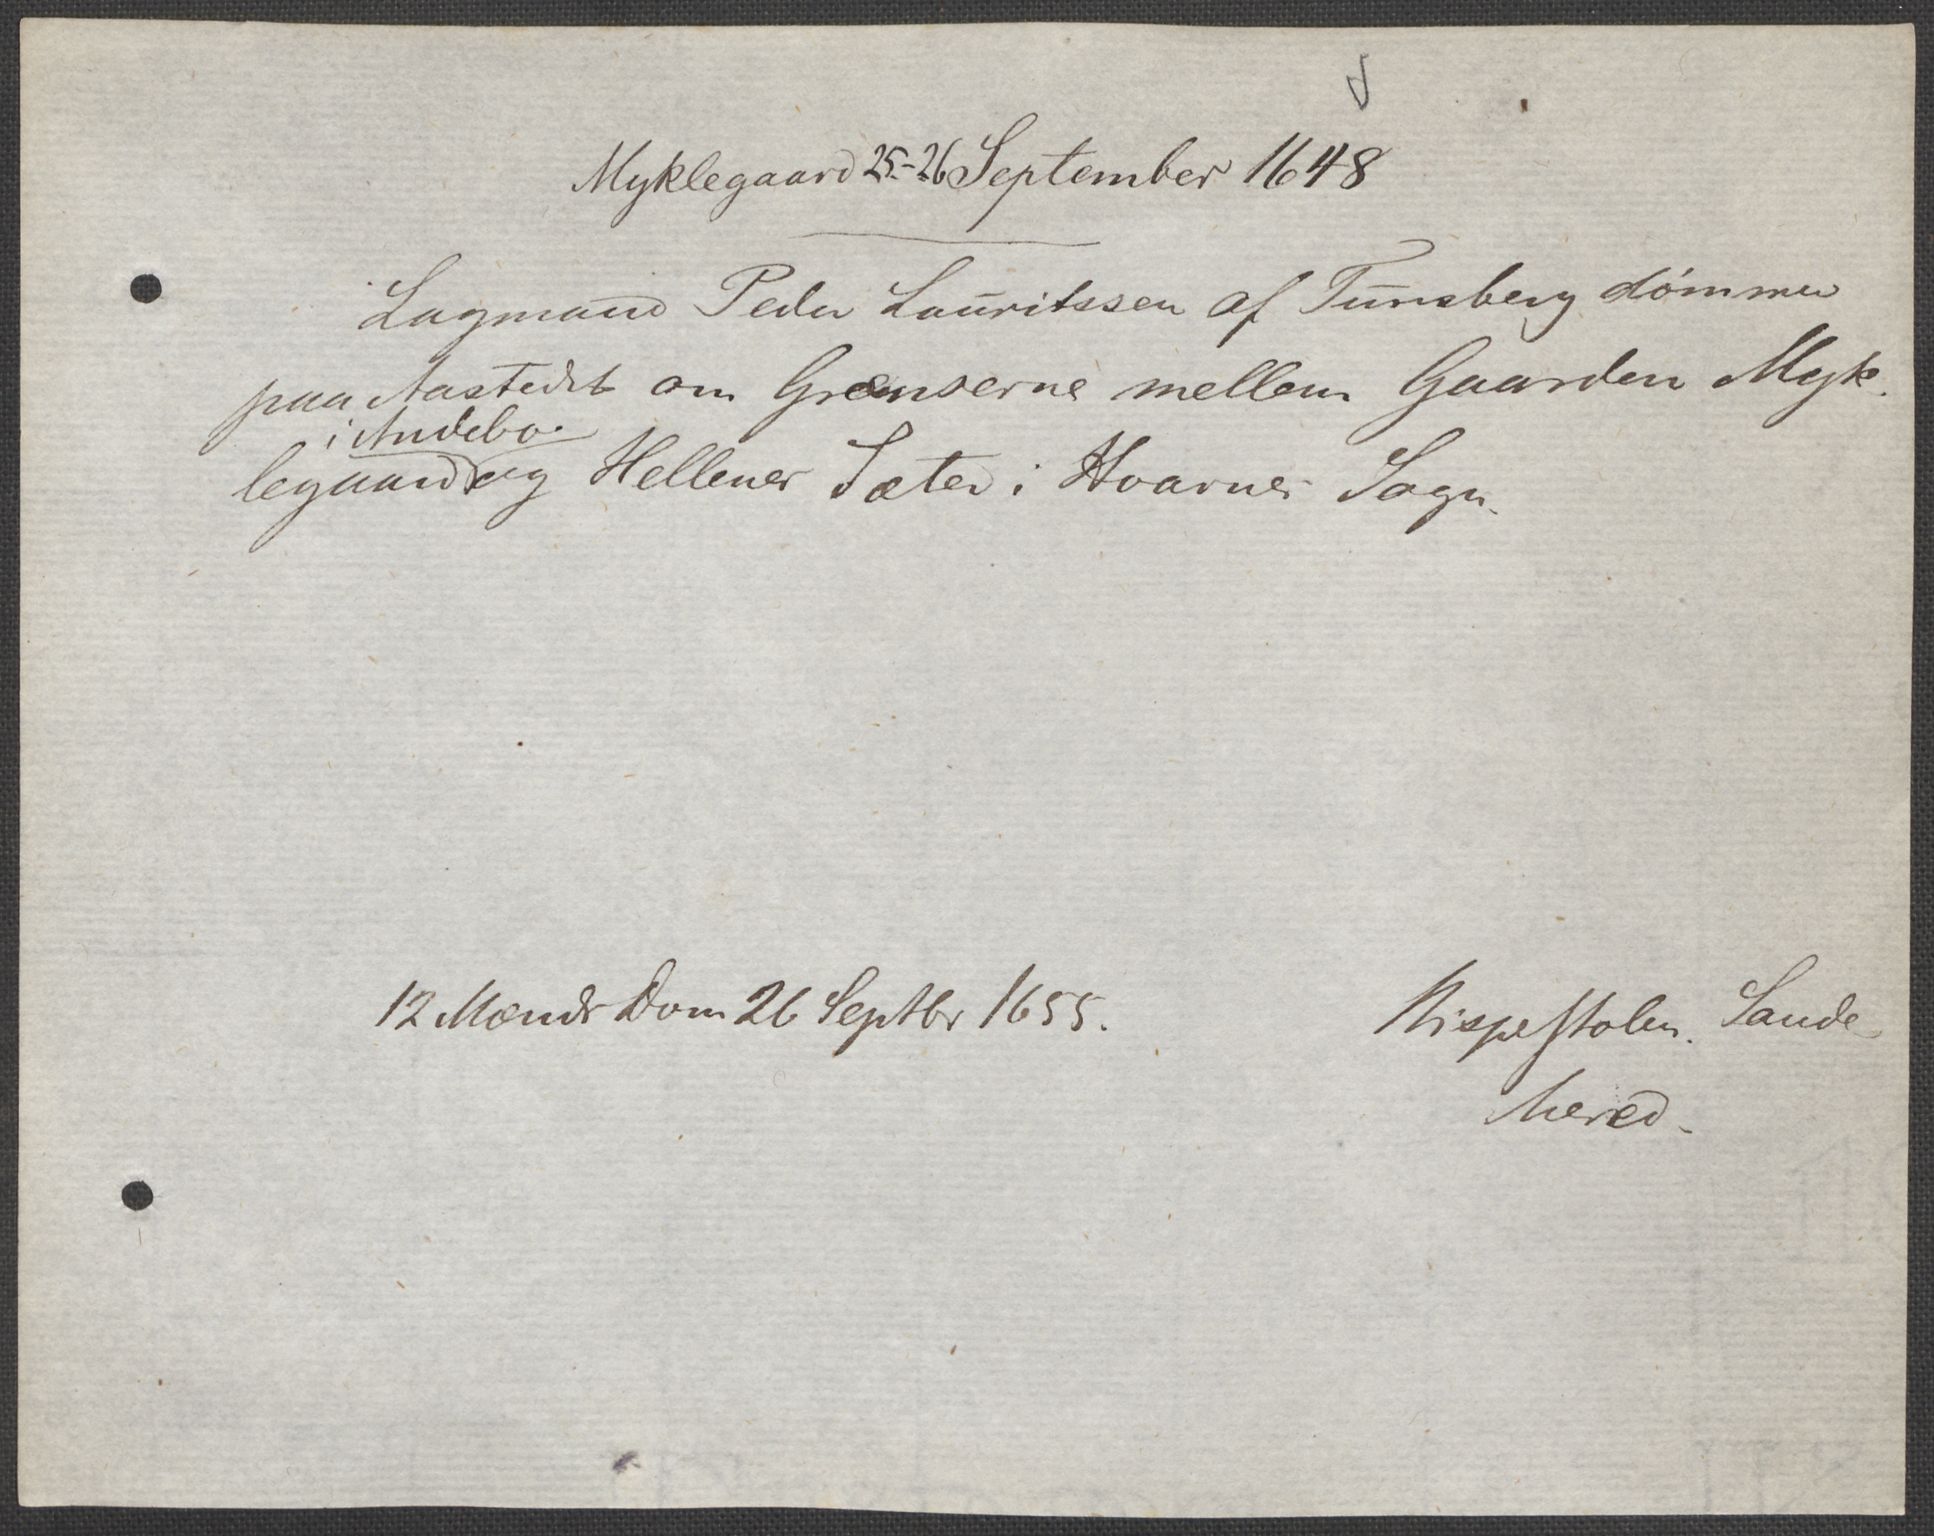 Myklegaard 25.-26 September 1648
Lagmand Peder Lauritssen af Tunsberg dømmer
paa Aastedet om Grænserne mellem Gaarden Myk-
i Andebo
legaard og Hellener Sæter i Hvarnes Sogn.
12 Mænds Dom 26 Septbr 1655.
Rispestolen. Sande
herred.